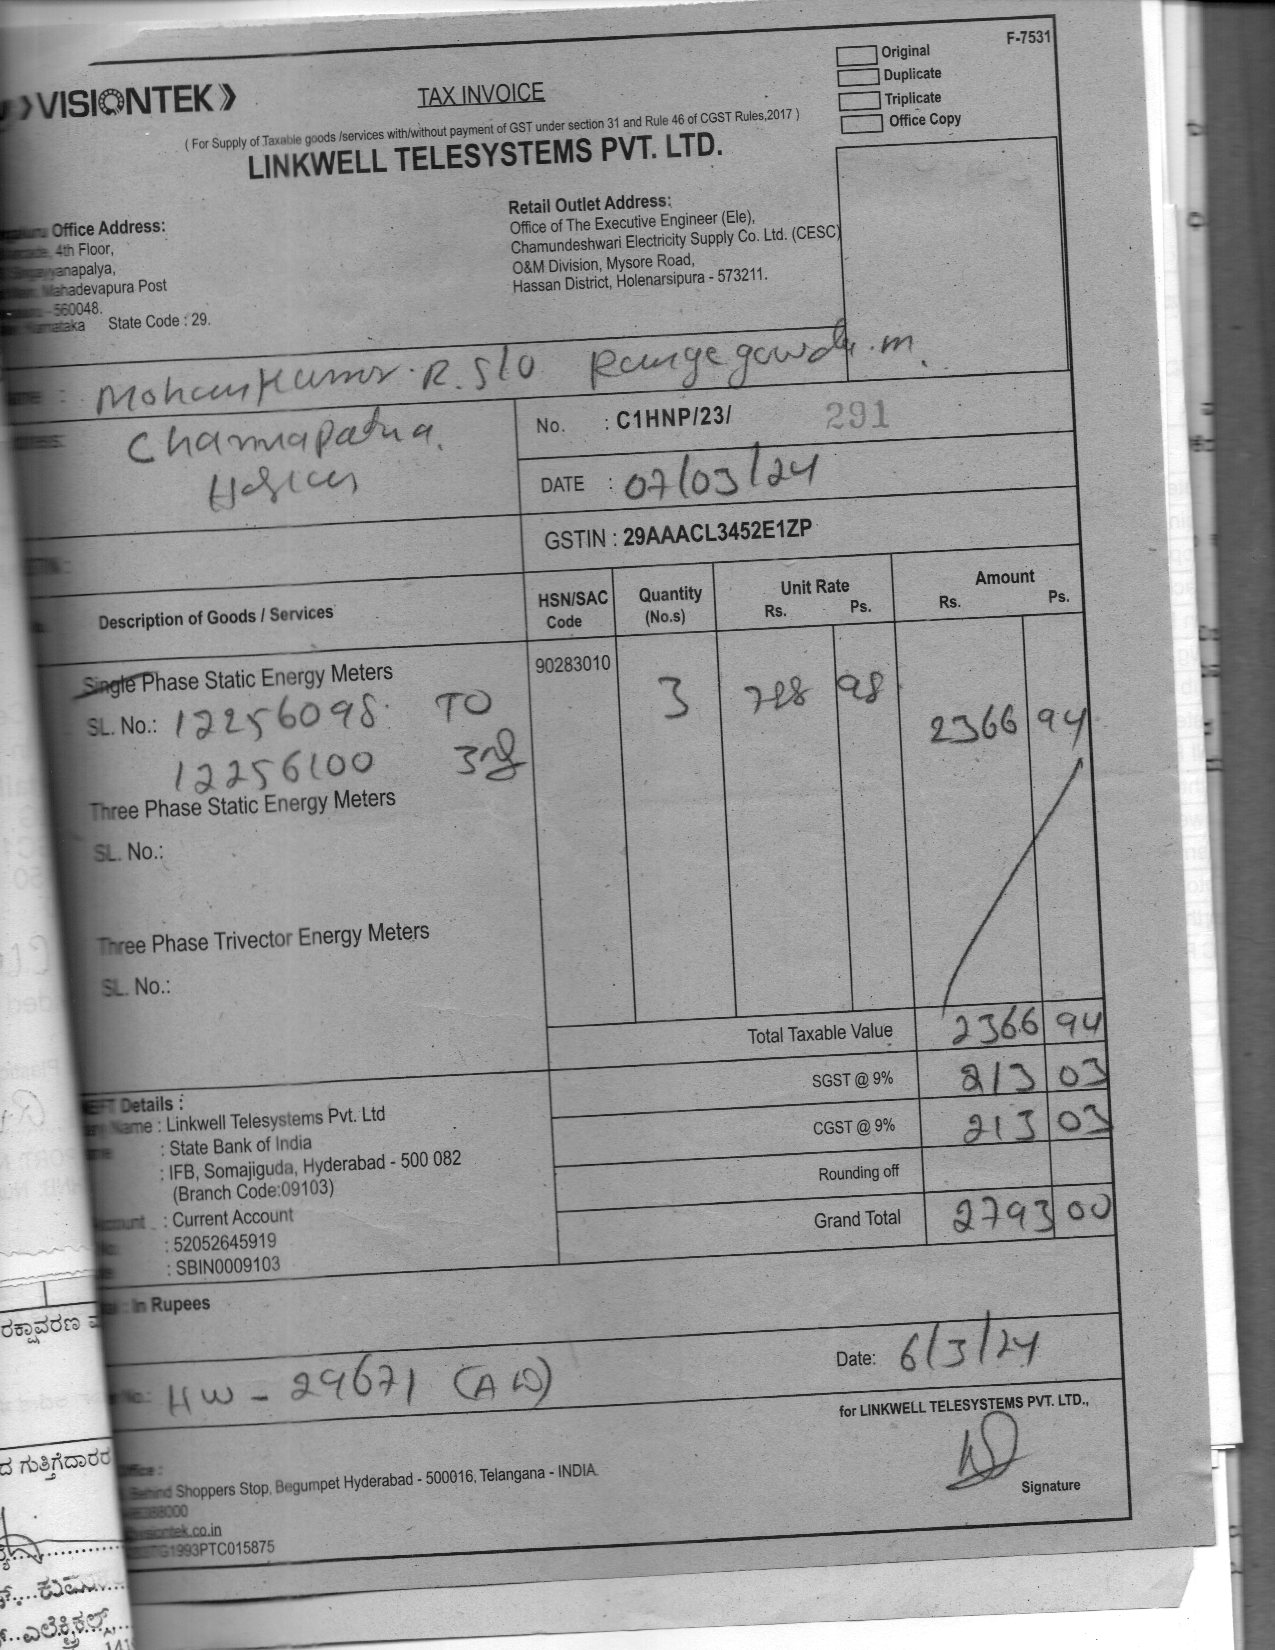 F-7531
Original
Duplicate
Triplicate
Office Copy
VISIONTEK
TAX INVOICE
( For Supply of Taxable goods /services with/without payment of GST under section 31 and Rule 46 of CGST Rules,2017 )
LINKWELL TELESYSTEMS PVT. LTD.
Office Address:
4th Floor,
Mahadevapura Post
- 560048.
State Code : 29.
Retail Outlet Address:
Office of The Executive Engineer (Ele),
Chamundeshwari Electricity Supply Co. Ltd. (CESC)
O&M Division, Mysore Road,
Hassan District, Holenarsipura - 573211.
: Mohankumar. R. S/O Rangegowda. m.
Channapatna.
Hassan
No. : C1HNP/23/ 291
DATE : 07/03/24
GSTIN : 29AAACL3452E1ZP
Description of Goods / Services HSN/SAC Code Quantity (No.s) Unit Rate Rs. Ps. Amount Rs. Ps.
Single Phase Static Energy Meters 90283010 3 788 98 2366 94
SL. No.: 12256098. TO
12256100
Three Phase Static Energy Meters
SL. No.:
Three Phase Trivector Energy Meters
SL. No.:
Total Taxable Value 2366 94
SGST @ 9% 213 03
CGST @ 9% 213 03
Rounding off
Grand Total 2793 00
NEFT Details :
Name : Linkwell Telesystems Pvt. Ltd
: State Bank of India
: IFB, Somajiguda, Hyderabad - 500 082
(Branch Code:09103)
: Current Account
: 52052645919
: SBIN0009103
: In Rupees
No.: HW - 29671 (AW)
Date: 6/3/24
for LINKWELL TELESYSTEMS PVT. LTD.,
Signature
Behind Shoppers Stop, Begumpet Hyderabad - 500016, Telangana - INDIA.
ರಕ್ಷಾವರಣ
ದ ಗುತ್ತಿಗೆದಾರರ